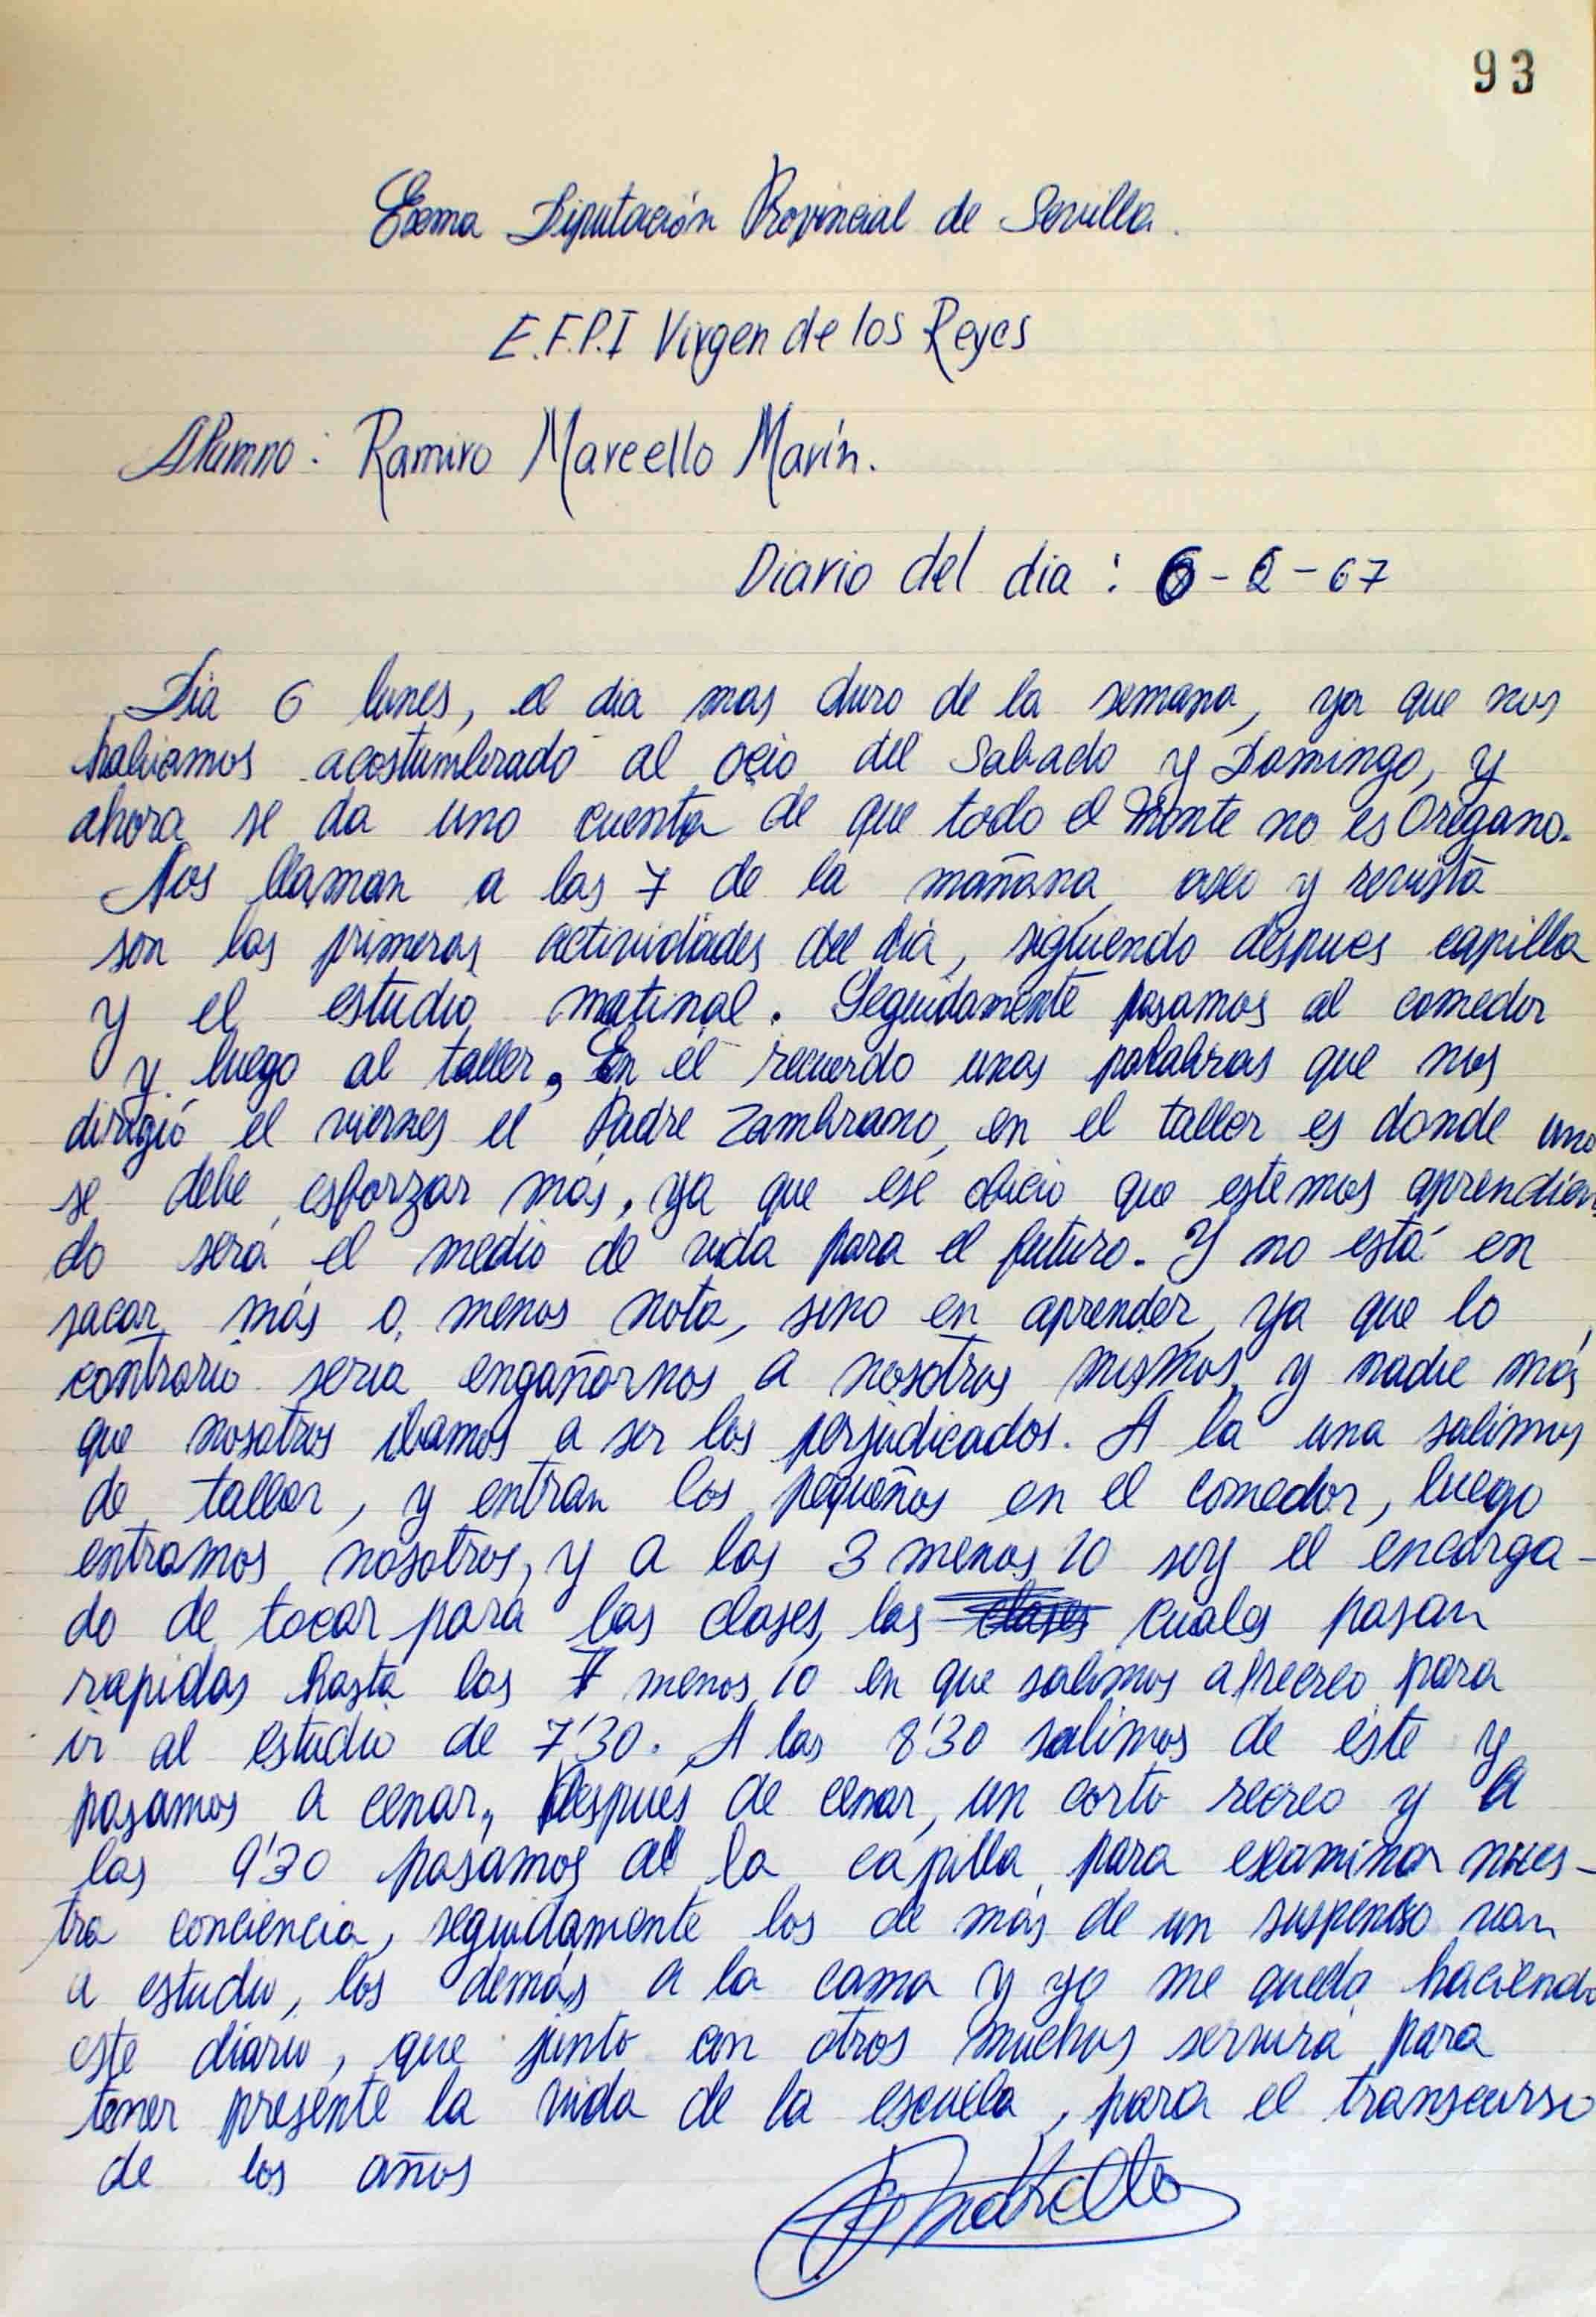 93
Exma Diputación Provincial de Sevilla.
E.F.P.I Virgen de los Reyes
Alumno: Ramiro Marcello Marín.
Diario del dia: 6-2-67
Dia 6 lunes, el dia mas duro de la semana, ya que nos
habiamos acostumbrado al ocio del Sabado y Domingo, y
ahora se da uno cuenta de que todo el monte no es Orégano.
Nos llaman a las 7 de la mañana, aseo y revista
son las primeras actividades del dia, siguiendo despues capilla
y el estudio matinal. Seguidamente pasamos al comedor
y luego al taller, En él recuerdo unas palabras que nos
dirigió el viernes el Padre Zambrano, en el taller es donde uno
se debe esforzar más, ya que ese oficio que estemos aprendien
do será el medio de vida para el futuro. Y no está en
sacar más o menos nota, sino en aprender, ya que lo
contrario seria engañarnos a nosotros mismos, y nadie más
que nosotros ibamos a ser los perjudicados. A la una salimos
de taller, y entran los pequeños en el comedor, luego
entramos nosotros, y a las 3 menos 10 soy el encarga-
do de tocar para las clases, las clases cuales pasan
rapidas hasta las 7 menos 10 en que salimos a recreo para
ir al estudio de 7'30. A las 8'30 salimos de éste y
pasamos a cenar, Después de cenar, un corto recreo y a
las 9'30 pasamos a la capilla para examinar nues-
tra conciencia, seguidamente los de más de un suspenso van
a estudio, los demás a la cama y yo me quedo haciendo
este diario, que junto con otros muchos servirá para
tener presente la vida de la escuela, para el transcurso
de los años